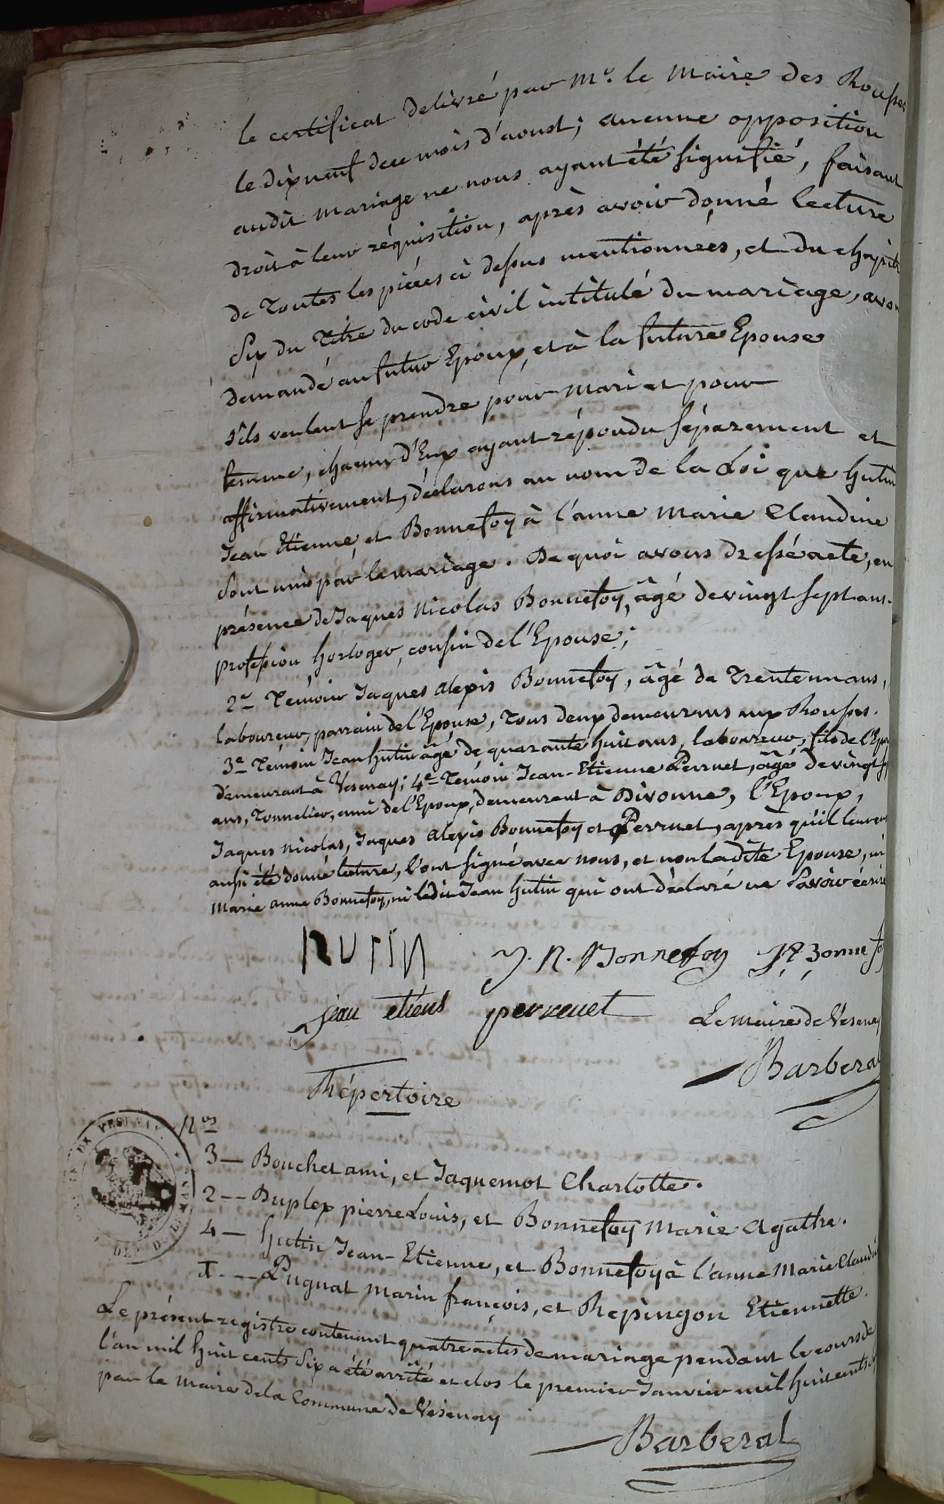 le certificat delivré par Mr. le Maire des Rousses
le dixneuf dece mois d'aoust; aucune opposition
audit mariage ne nous ayant été signifié, faisant
droit à leur réquisition, après avoir donné lecture
de toutes les pièces ci dessus mentionnées, et du chapitre
Six du Titre du code civil intitulé du mariage, avons
demandé au futur Epoux, et à la future Epouse
s'ils veulent se prendre pour mari et pour
femme, chacun d'Eux ayant répondu séparement et
affirmativement, déclarons au nom de la Loi que hutin
Jean Etienne, et Bonnefoy à l'anne Marie Claudine
Sont unis par le mariage. De quoi avons dressé acte, en
présence de Jaques Nicolas Bonnefoy, âgé de vingt sept ans.
profession horloger, cousin de l'Epouse;
2e. Témoin Jaques alexis Bonnefoy, âgé de Trente un ans,
laboureur, parrain de l'Epouse, tous deux demeurans aux Rousses.
3e. Témoin Jean hutin âgé de quarante huit ans, laboureur, fils de l'Epo
demeurant à Vesenay; 4e. Témoin Jean-Etienne Perruet, âgé de vingt
ans, Tonnelier, ami de l'Epoux, demeurant à Divonne, l'Epoux,
Jaques Nicolas, Jaques Alexis Bonnefoy et Perruet, après qu'il leur en
aussi été donné lecture, l'ont signé avec nous, et non ladite Epouse, ni
Marie anne Bonnefoy, ni ledit Jean hutin qui ont déclaré ne Savoir écrire
HUTIN J. N. Bonnefoy JA Bonnefoy
jean etiens perreuet Le maire de Vesenay
Barberat
Répertoire
Nos
3 — Bouchet ami, et Jaquemot Charlotte.
2 — Duplex pierre Louis, et Bonnefoy Marie Agathe.
4 — hutin Jean-Etienne, et Bonnefoy à l'anne Marie Claudine
1. — Pugnat Marin françois, et Repingon Etiennette.
Le présent registre contenant quatre actes de mariage pendant le cours de
l'an mil huit cents Six a été arrêté et clos le premier Janvier mil huit cents
par le Maire de la Commune de Vesenay
Barberat